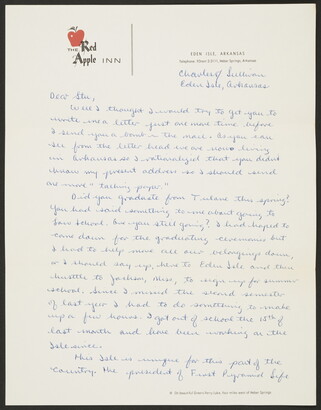 THE Red Apple INN
EDEN ISLE, ARKANSAS
Telephone Heber Springs, Arkansas
Charles J Sullivan
Eden Isle, Arkansas
Dear Stu,
Well I thought I would try to get you to
write me a letter just one more time before
I send you a bomb in the mail. As you can
see from the letter head we are now living
in Arkansas so I rationalized that you didn't
know my present address so I should send
one more "talking paper."
Did you graduate from Tulane this spring?
You had said something to me about going to
Law School. Are you still going? I had hoped to
come down for the graduating ceremonies but
I had to help move all our belongings down,
or I should say up, here to Eden Isle and then
hustle to Jackson, Miss, to sign up for summer
school. Since I missed the second semester
of last year I had to do something to make
up a few hours. I got out of school the 15th of
last month and have been working on the
Isle since.
This Isle is unique for this part of the
Country. The president of First Pyramid Life
on Greers Ferry Lake, four miles west of Heber Springs